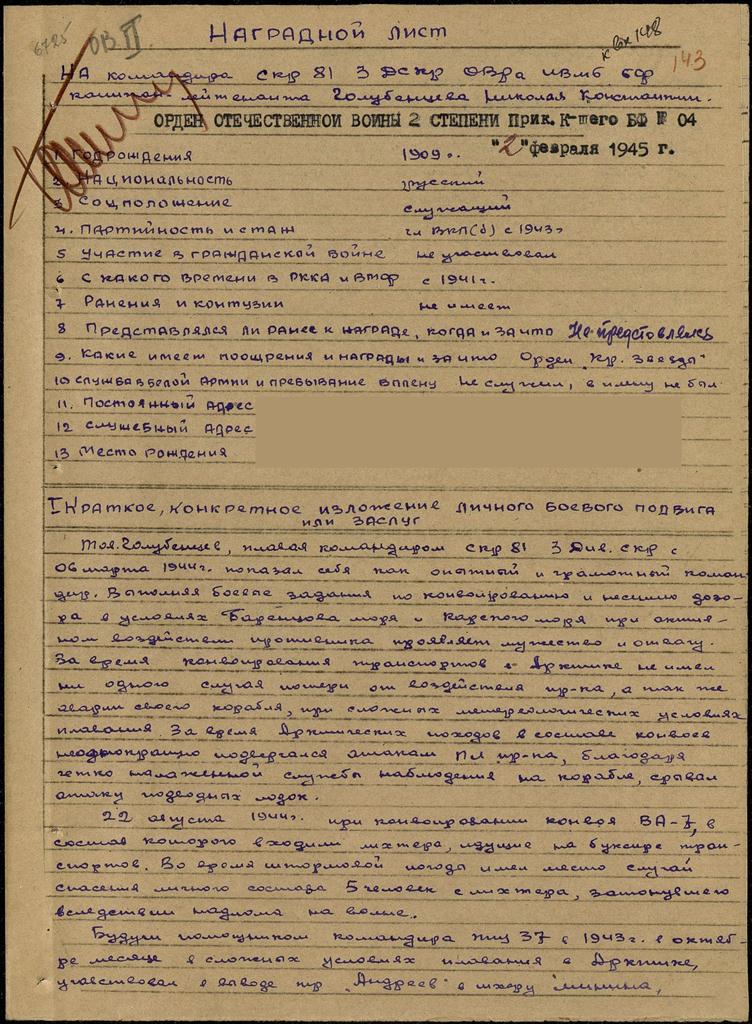 6725
ОВ II
НАГРАДНОЙ ЛИСТ
к Вх 148
143
НА командира СКР 81 3 ДСКР ОВРа ИВМБ БФ
капитан-лейтенанта Голубенцева Николая Константин.
ОРДЕН ОТЕЧЕСТВЕННОЙ ВОЙНЫ 2 СТЕПЕНИ Прик. К-шего БФ № 04
"2" февраля 1945 г.
1. Год рождения 1909 г.
2. Национальность русский
3. Соцположение служащий
4. Партийность и стаж чл ВКП(б) с 1943г
5 Участие в гражданской войне не участвовал
6 С какого времени в РККА и ВМФ с 1941г.
7 Ранения и контузии не имеет
8 Представлялся ли ранее к награде, когда и за что Не представлялся
9. Какие имеет поощрения и награды и за что Орден "Кр. Звезда"
10 Служба в белой армии и пребывание в плену Не служил, в плену не был
11. Постоянный адрес
12 Служебный адрес
13 Место рождения
I Краткое, конкретное изложение личного боевого подвига
или заслуг
Тов. Голубенцев, плавая командиром СКР 81 3 Див. СКР с
06 марта 1944г. показал себя как опытный и грамотный коман-
дир. Выполняя боевые задания по конвоированию и несению дозо-
ра в условиях Баренцова моря и Карского моря при актив-
ном воздействии противника проявляет мужество и отвагу.
За время конвоирования транспортов в Арктике не имел
ни одного случая потери от воздействия пр-ка, а так же
аварии своего корабля, при сложных метереологических условиях
плавания За время Арктических походов в составе конвоев
неоднократно подвергался атакам ПЛ пр-ка, благодаря
четко налаженной службы наблюдения на корабле, срывал
атаку подводных лодок.
22 августа 1944г. при конвоировании конвоя ВА-7, в
состав которого входили лихтера, идущие на буксире тран-
спортов. Во время штормовой погоды имел место случай
спасения личного состава 5 человек с лихтера, затонувшего
вследствии надлома на волне.
Будучи помощником командира ТЩ 37 с 1943г. в октяб-
ре месяце в сложных условиях плавания в Арктике,
участвовал в выводе тр "Андреев" в шхеру Минина,